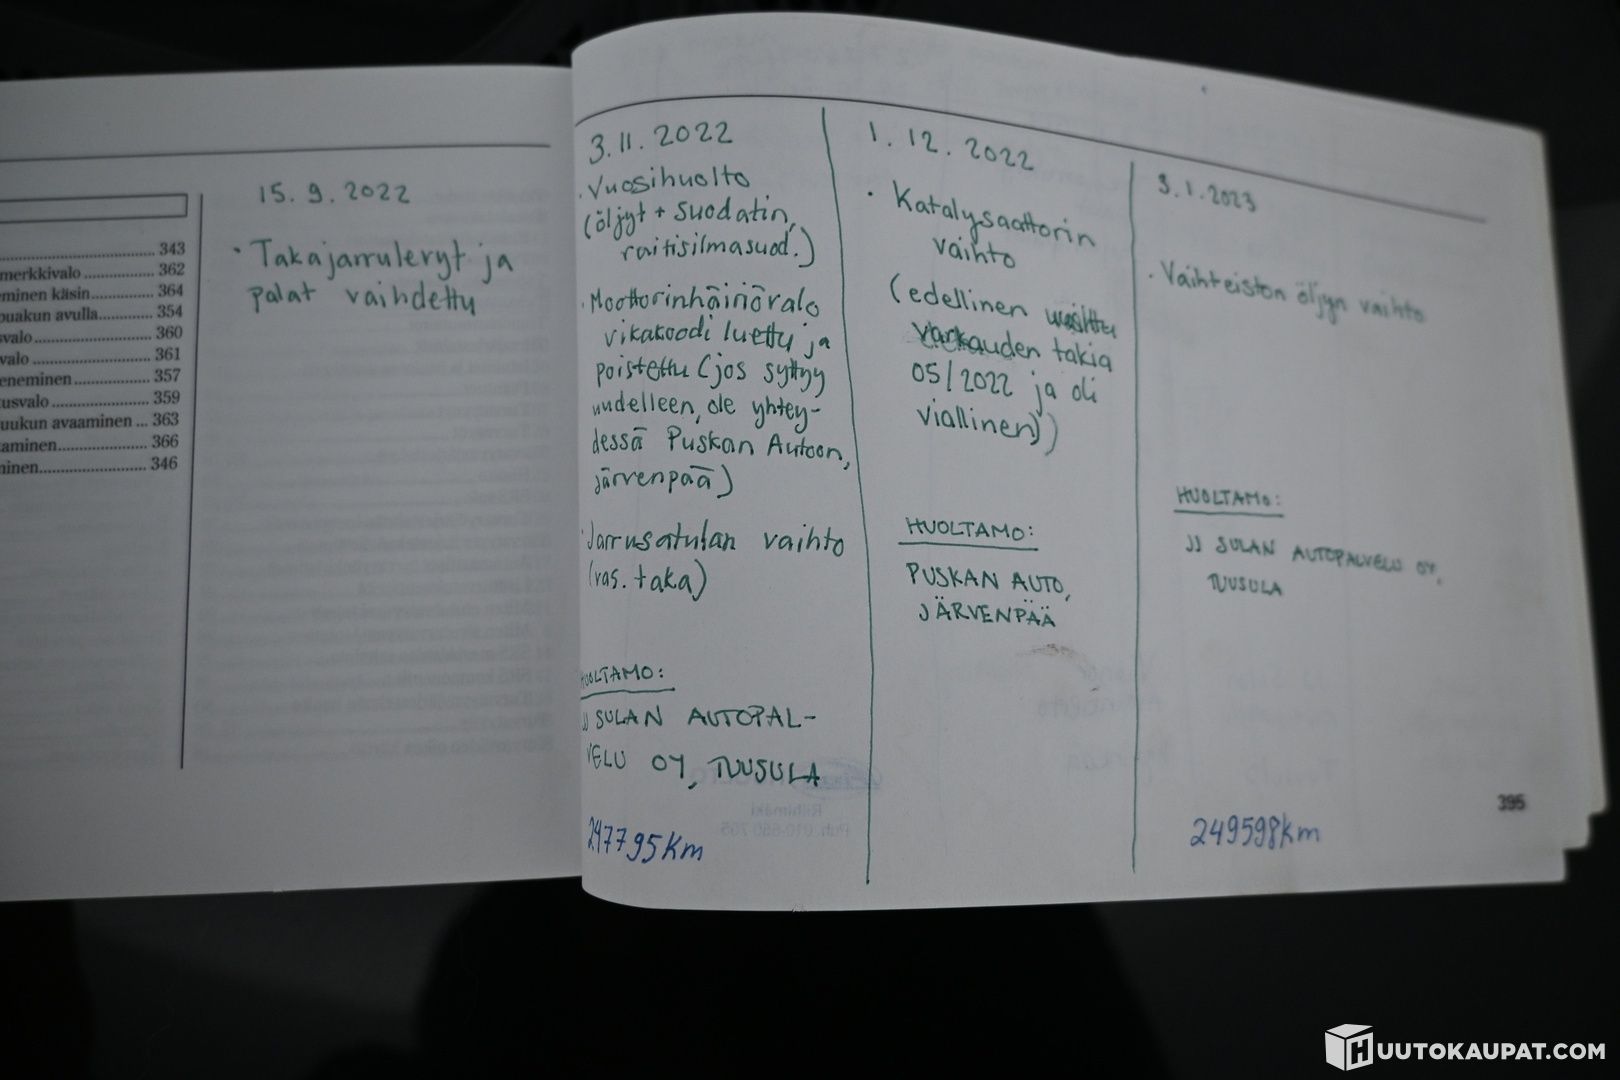 343
merkkivalo 362
eminen käsin 364
puakun avulla 354
svalo 360
valo 361
eneminen 357
usvalo 359
uukun avaaminen ... 363
taminen 366
minen 346
15.9.2022
· Takajarrulevyt ja
palat vaihdettu
3.11.2022
· Vuosihuolto
(öljyt + suodatin,
raitisilmasuod.)
· Moottorinhäiriövalo
vikakoodi luettu ja
poistettu (jos syttyy
uudelleen, ole yhtey-
dessä Puskan Autoon,
järvenpää)
· Jarrusatulan vaihto
(vas. taka)
HUOLTAMO:
JJ SULAN AUTOPAL-
VELU OY, TUUSULA
247795km
1.12.2022
· Katalysaattorin
vaihto
(edellinen
varkauden takia
05/2022 ja oli
viallinen))
HUOLTAMO:
PUSKAN AUTO,
JÄRVENPÄÄ
3.1.2023
· Vaihteiston öljyn vaihto
HUOLTAMO:
JJ SULAN AUTOPALVELU OY,
TUUSULA
249598km
395
HUUTOKAUPAT.COM